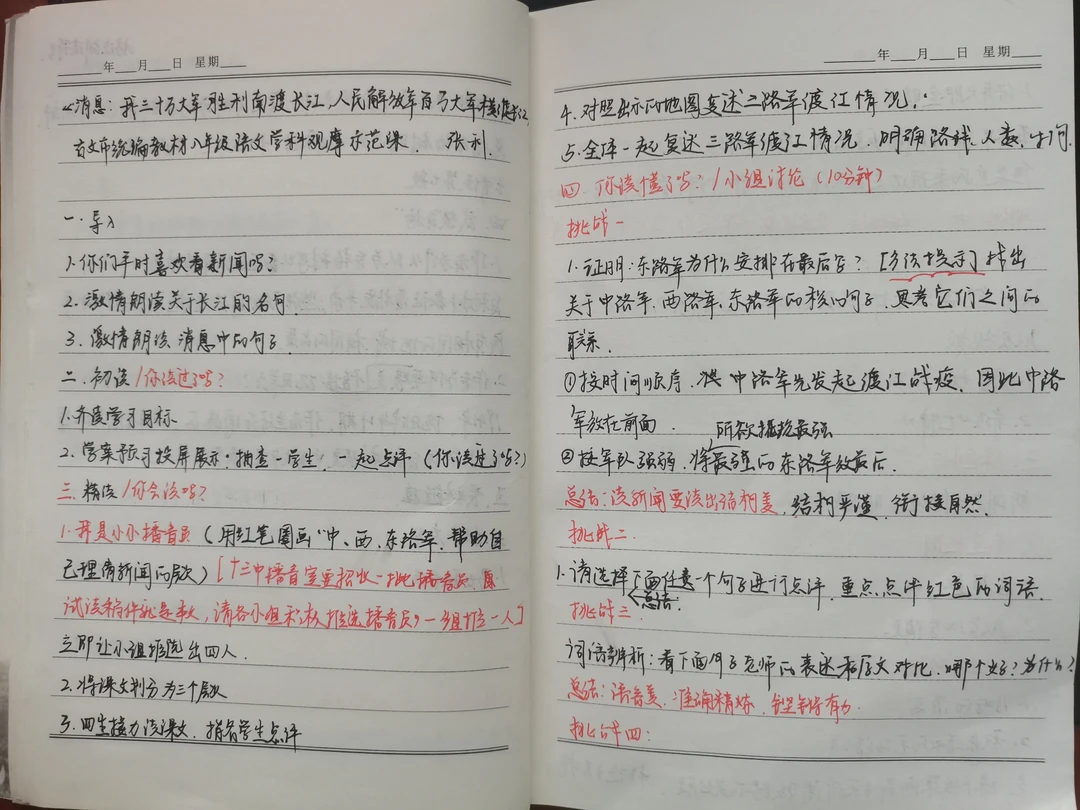 年 月 日 星期
《消息：我三十万大军胜利南渡长江，人民解放军百万大军横渡长江》
市统编教材八年级语文学科观摩示范课 张利
一.导入
1.你们平时喜欢看新闻吗?
2.激情朗读关于长江的名句.
3.激情朗读消息中的句子.
二.初读/你读过了吗?
1.齐读学习目标
2.学案预习投屏展示·抽查一学生.一起点评(你读过了吗?)
三.精读/你会读吗?
1.我是小小播音员(用红笔圈画"中、西、东路军,帮助自
己理清新闻的层次)[十三中播音室要招收一批播音员,
试读稿件就是本文,请各小组积极推选播音员)一组推一人]
立即让小组推选出四人.
2.将课文划分为三个层次
3.四生接力读课文,指名学生点评
年 月 日 星期
4.对照出示的地图复述三路军渡江情况.
5.全体一起复述三路军渡江情况,明确路线、人数、时间.
四.你读懂了吗?/小组讨论(10分钟)
挑战一
1.证明:东路军为什么安排在最后写?[方法提示]找出
关于中路军、西路军、东路军的核心句子,思考它们之间的
联系.
①按时间顺序,从中路军先发起渡江战疫,因此中路
军放在前面. 所欲抵抗最强
②按军队强弱,将最强的东路军放最后.
总结:读新闻要读出结构美,结构严谨,衔接自然.
挑战二.
1.请选择下面任意一个句子进行点评,重点点评红色的词语.
总结.
挑战三
词语辨析:看下面句子老师的表述和原文对比,哪个好?为什么?
总结:语言美,准确精炼,铿锵有力.
挑战四: